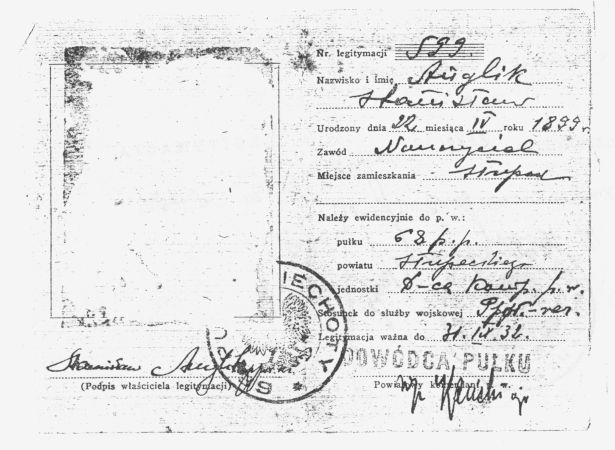 Nr. legitymacji 599.
Nazwisko i imię Anglik
Stanisław
Urodzony dnia 22 miesiąca IV roku 1899 r.
Zawód Nauczyciel
Miejsce zamieszkania Słupca
Należy ewidencyjnie do p. w.:
pułku 68 p.p.
powiatu słupeckiego
jednostki D-ca komp. p. w.
Stosunek do służby wojskowej Ppor.-rez.
Legitymacja ważna do 31.IV.32.
PIECHOTY
DOWÓDCA PUŁKU
Stanisław Anglik
(Podpis właściciela legitymacji)
Powiatowy komendant p. w.